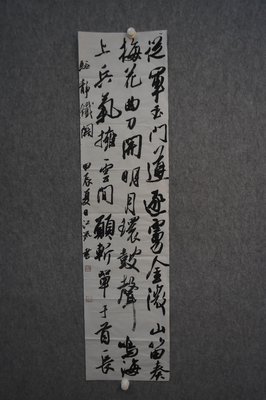 從軍玉門道逐虜金微山笛奏
梅花曲刀開明月環鼓聲鳴海
上兵氣擁雲間願斬單于首長
驅靜鐵關